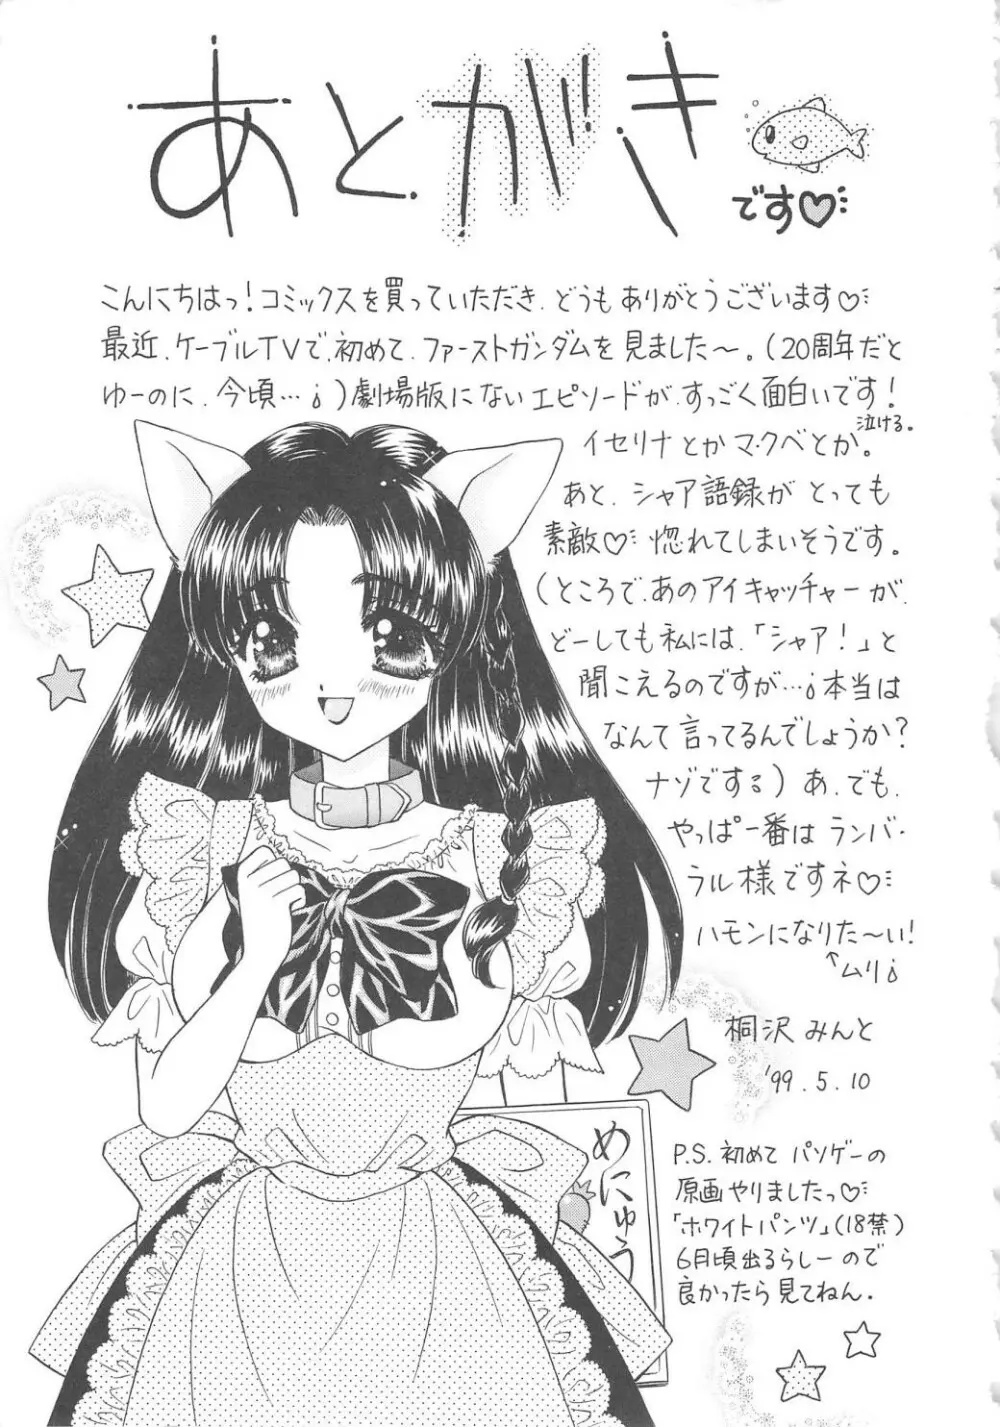 あとがき
です♡
こんにちはっ!コミックスを買っていただき、どうもありがとうございます♡
最近、ケーブルTVで、初めて、ファーストガンダムを見ました〜。(20周年だと
ゆーのに、今頃…¡)劇場版にないエピソードが、すっごく面白いです!
泣ける。
イセリナとかマ・クベとか。
あと、シャア語録がとっても
素敵♡惚れてしまいそうです。
(ところで、あのアイキャッチャーが、
どーしても私には、「シャア!」と
聞こえるのですが…¡本当は
なんて言ってるんでしょうか?
ナゾでする)あ、でも、
やっぱ一番はランバ・
ラル様ですネ♡
ハモンになりた〜い!
↑ムリ¡
桐沢みんと
'99.5.10
めにゅう
P.S.初めてパソゲーの
原画やりましたっ♡
「ホワイトパンツ」(18禁)
6月頃出るらしーので
良かったら見てねん。